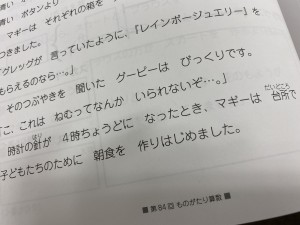 青い ボタンより
マギーは それぞれの箱を
つきました。
グレッグが 言っていたように、「レインボージュエリー」を
もらえるのなら…。」
そのつぶやきを 聞いた グーピーは びっくりです。
これは ねむってなんか いられないぞ…。」
時計の針が 4時ちょうどに なったとき、マギーは 台所で
子どもたちのために 朝食を 作りはじめました。
■ 第84回 ものがたり算数 ■